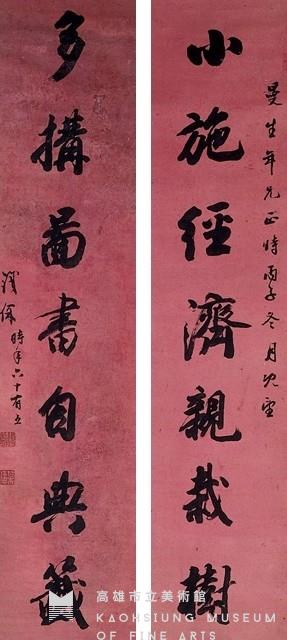 曼生年兄正時丙子冬月既望
小施經濟親栽樹
多搆圖書自典籤
鐵保時年六十有五
高雄市立美術館
KAOHSIUNG MUSEUM
OF FINE ARTS